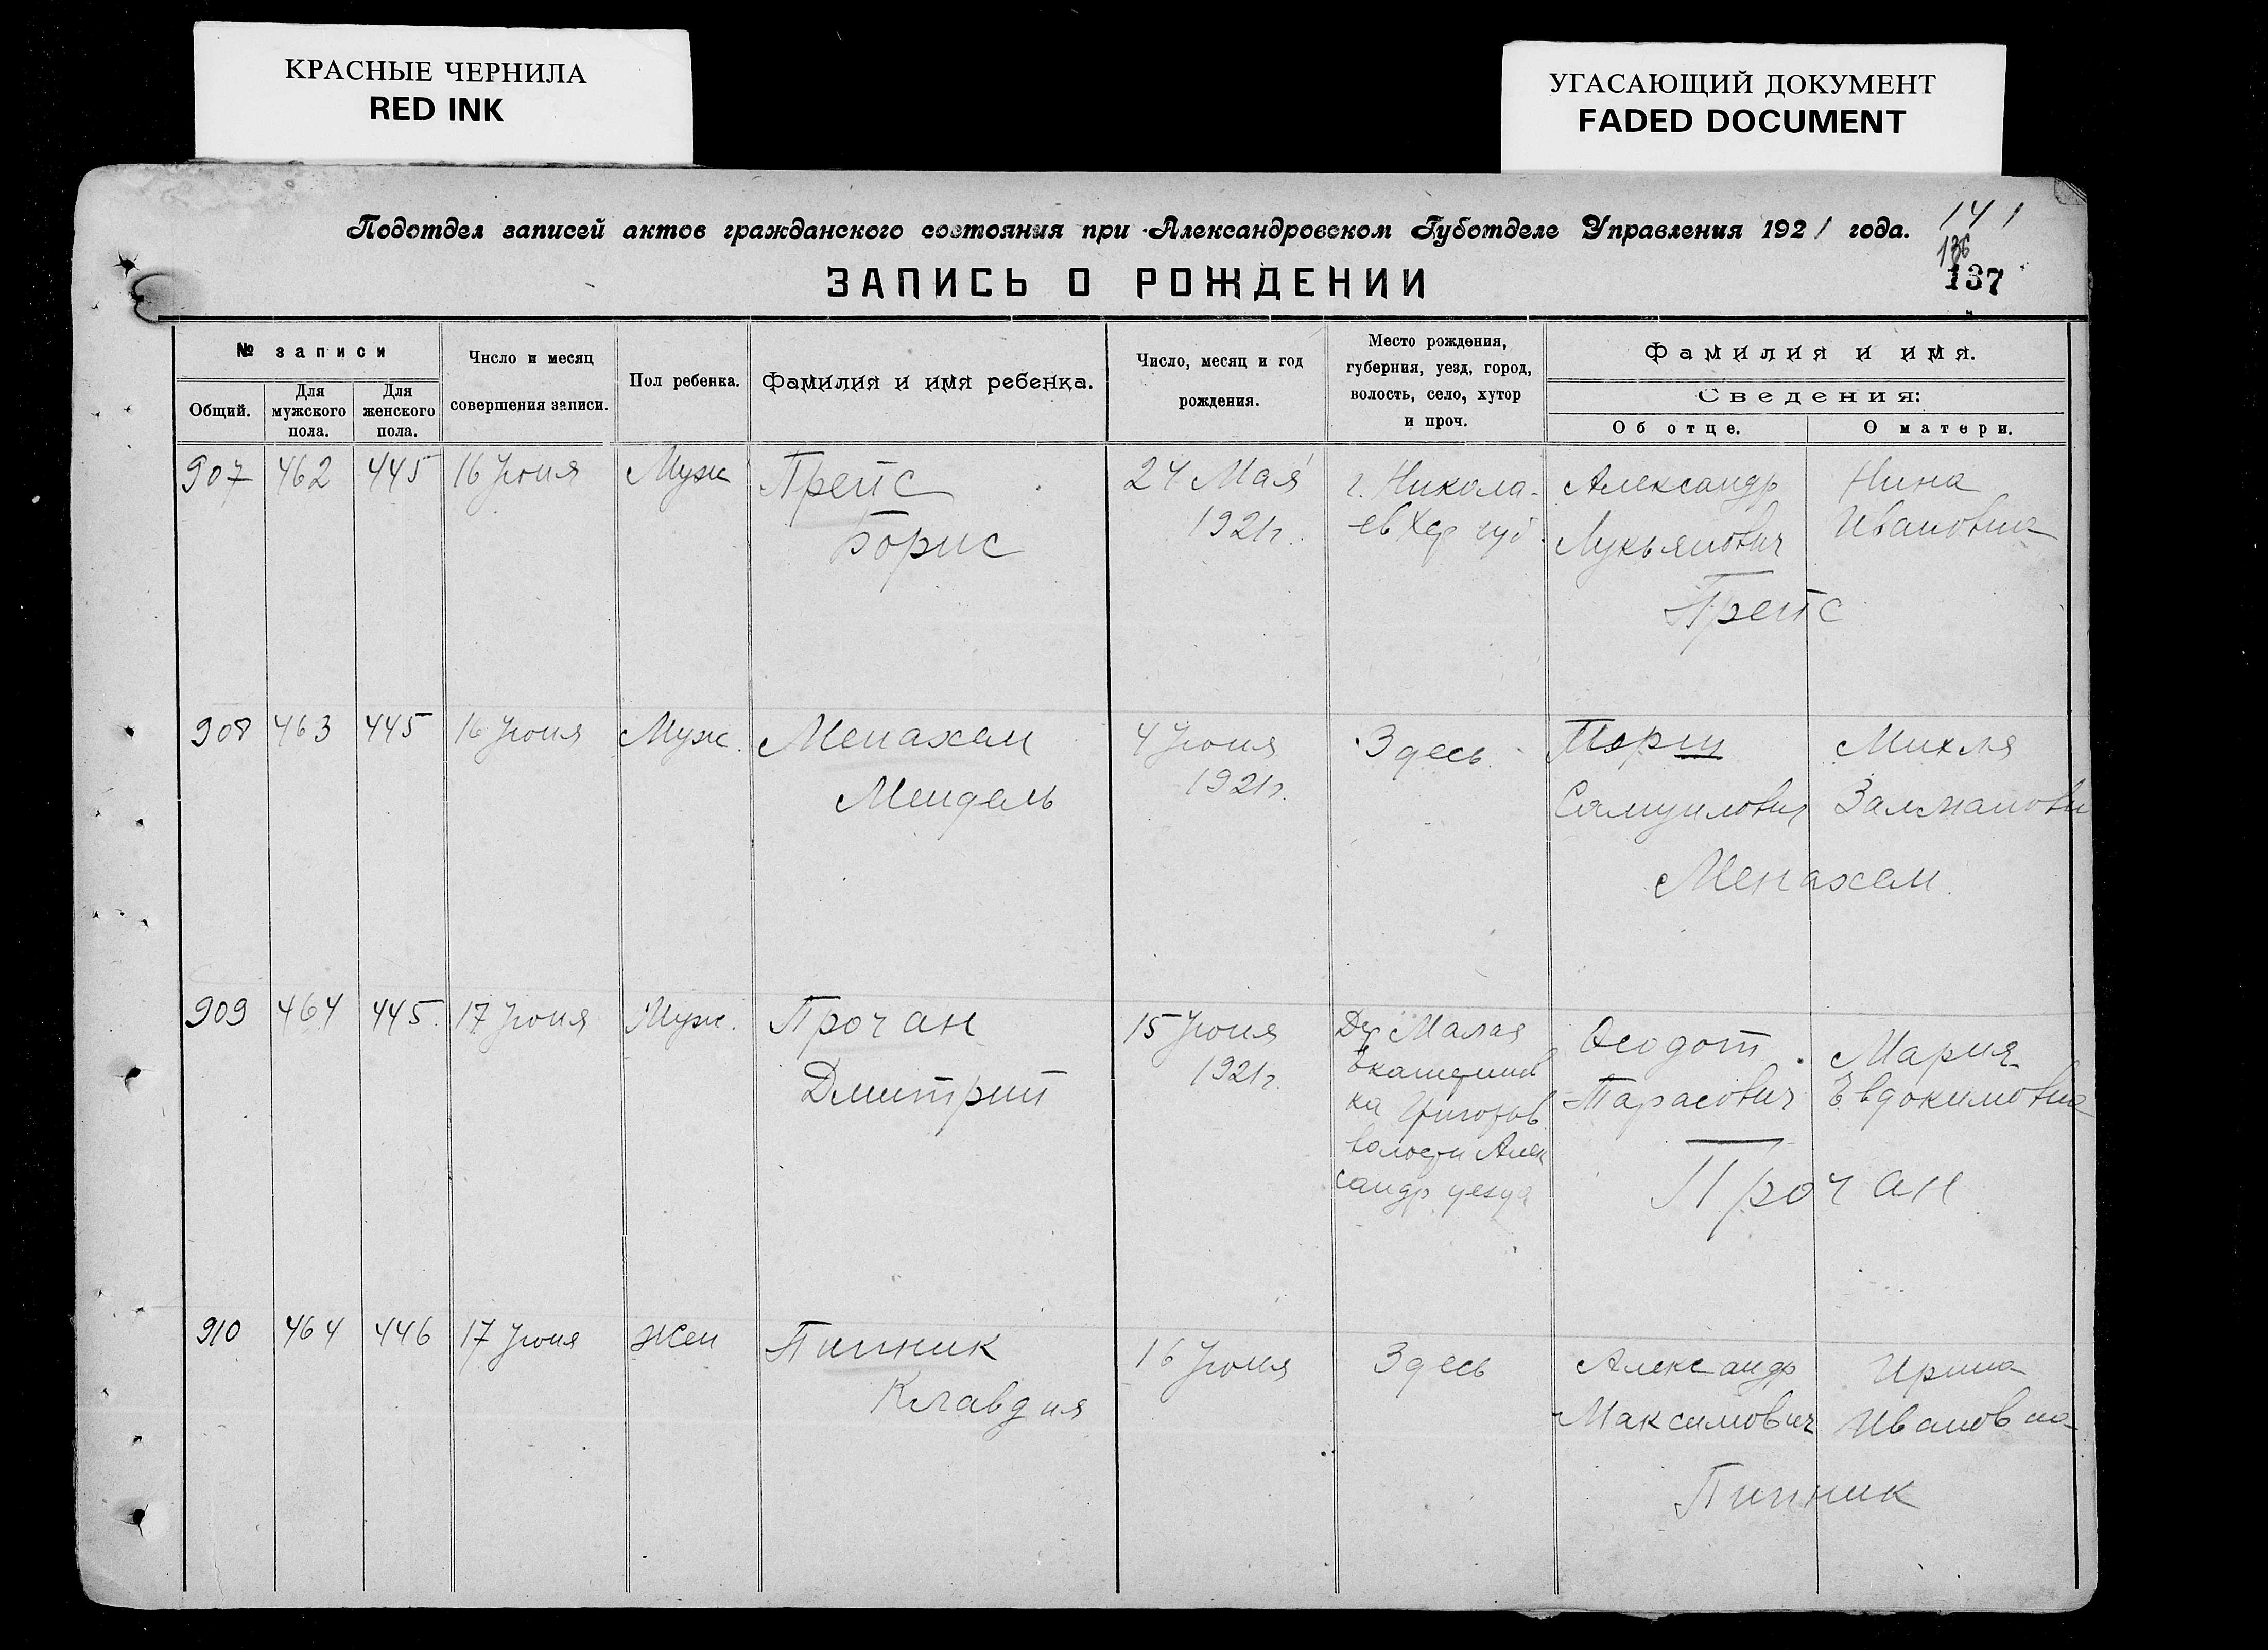 КРАСНЫЕ ЧЕРНИЛА
RED INK
УГАСАЮЩИЙ ДОКУМЕНТ
FADED DOCUMENT
Подотдел записей актов гражданского состояния при Александровском Губотделе Управления 1921 года.
141
136
137
ЗАПИСЬ О РОЖДЕНИИ
№ записи
Общий.
Для мужского пола.
Для женского пола.
Число и месяц
совершения записи.
Пол ребенка.
Фамилия и имя ребенка.
Число, месяц и год
рождения.
Место рождения,
губерния, уезд, город,
волость, село, хутор
и проч.
Фамилия и имя.
Сведения:
Об отце.
О матери.
907 462 445 16 Июня Муж Прейс
Борис
24 Мая
1921г.
г. Никола-
ев Хер губ.
Александр
Лукьянович
Нина
Ивановна
Прейс
908 463 445 16 Июня Муж. Менахем
Мендель
4 Июня
1921г.
Здесь
Самуилович
Михля
Залмановн
Менахем
909 464 445 17 Июня Муж. Прочан
Дмитрий
15 Июня
1921г.
Дер Малая
Екатеринов
ка Григоров
волости Алек
сандр уезда
Феодот
Тарасович
Мария
Евдокимовна
Прочан
910 464 446 17 Июня Жен Пипник
Клавдия
16 Июня
Здесь
Александр
Максимович
Ирина
Ивановна
Пипник